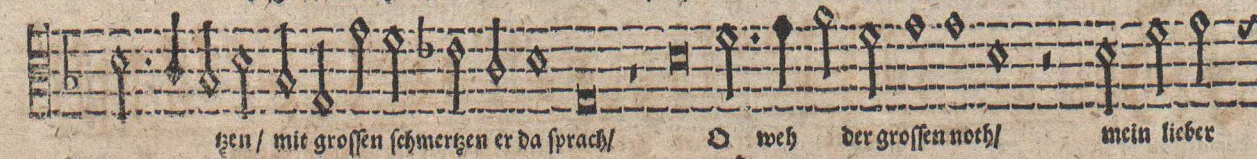 tzen / mit groſſen ſchmertzen er da ſprach/ O weh der groſſen noth/ mein lieber